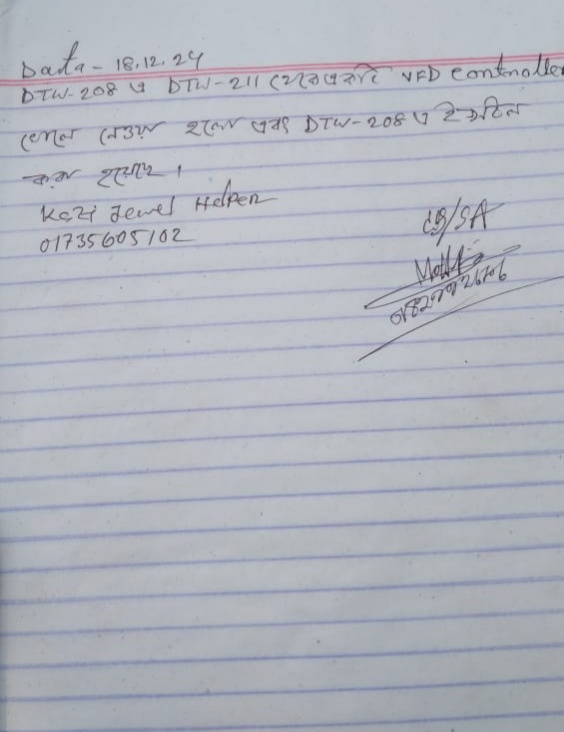 Data - 18.12.24
DTW-208 ও DTW-211 থেকে একটি VFD controller
খোলে নেওয়া হলো এবং DTW-208 এ ইন্সটল
করা হয়েছে।
Kazi Jewel Helper
01735605102
/SA